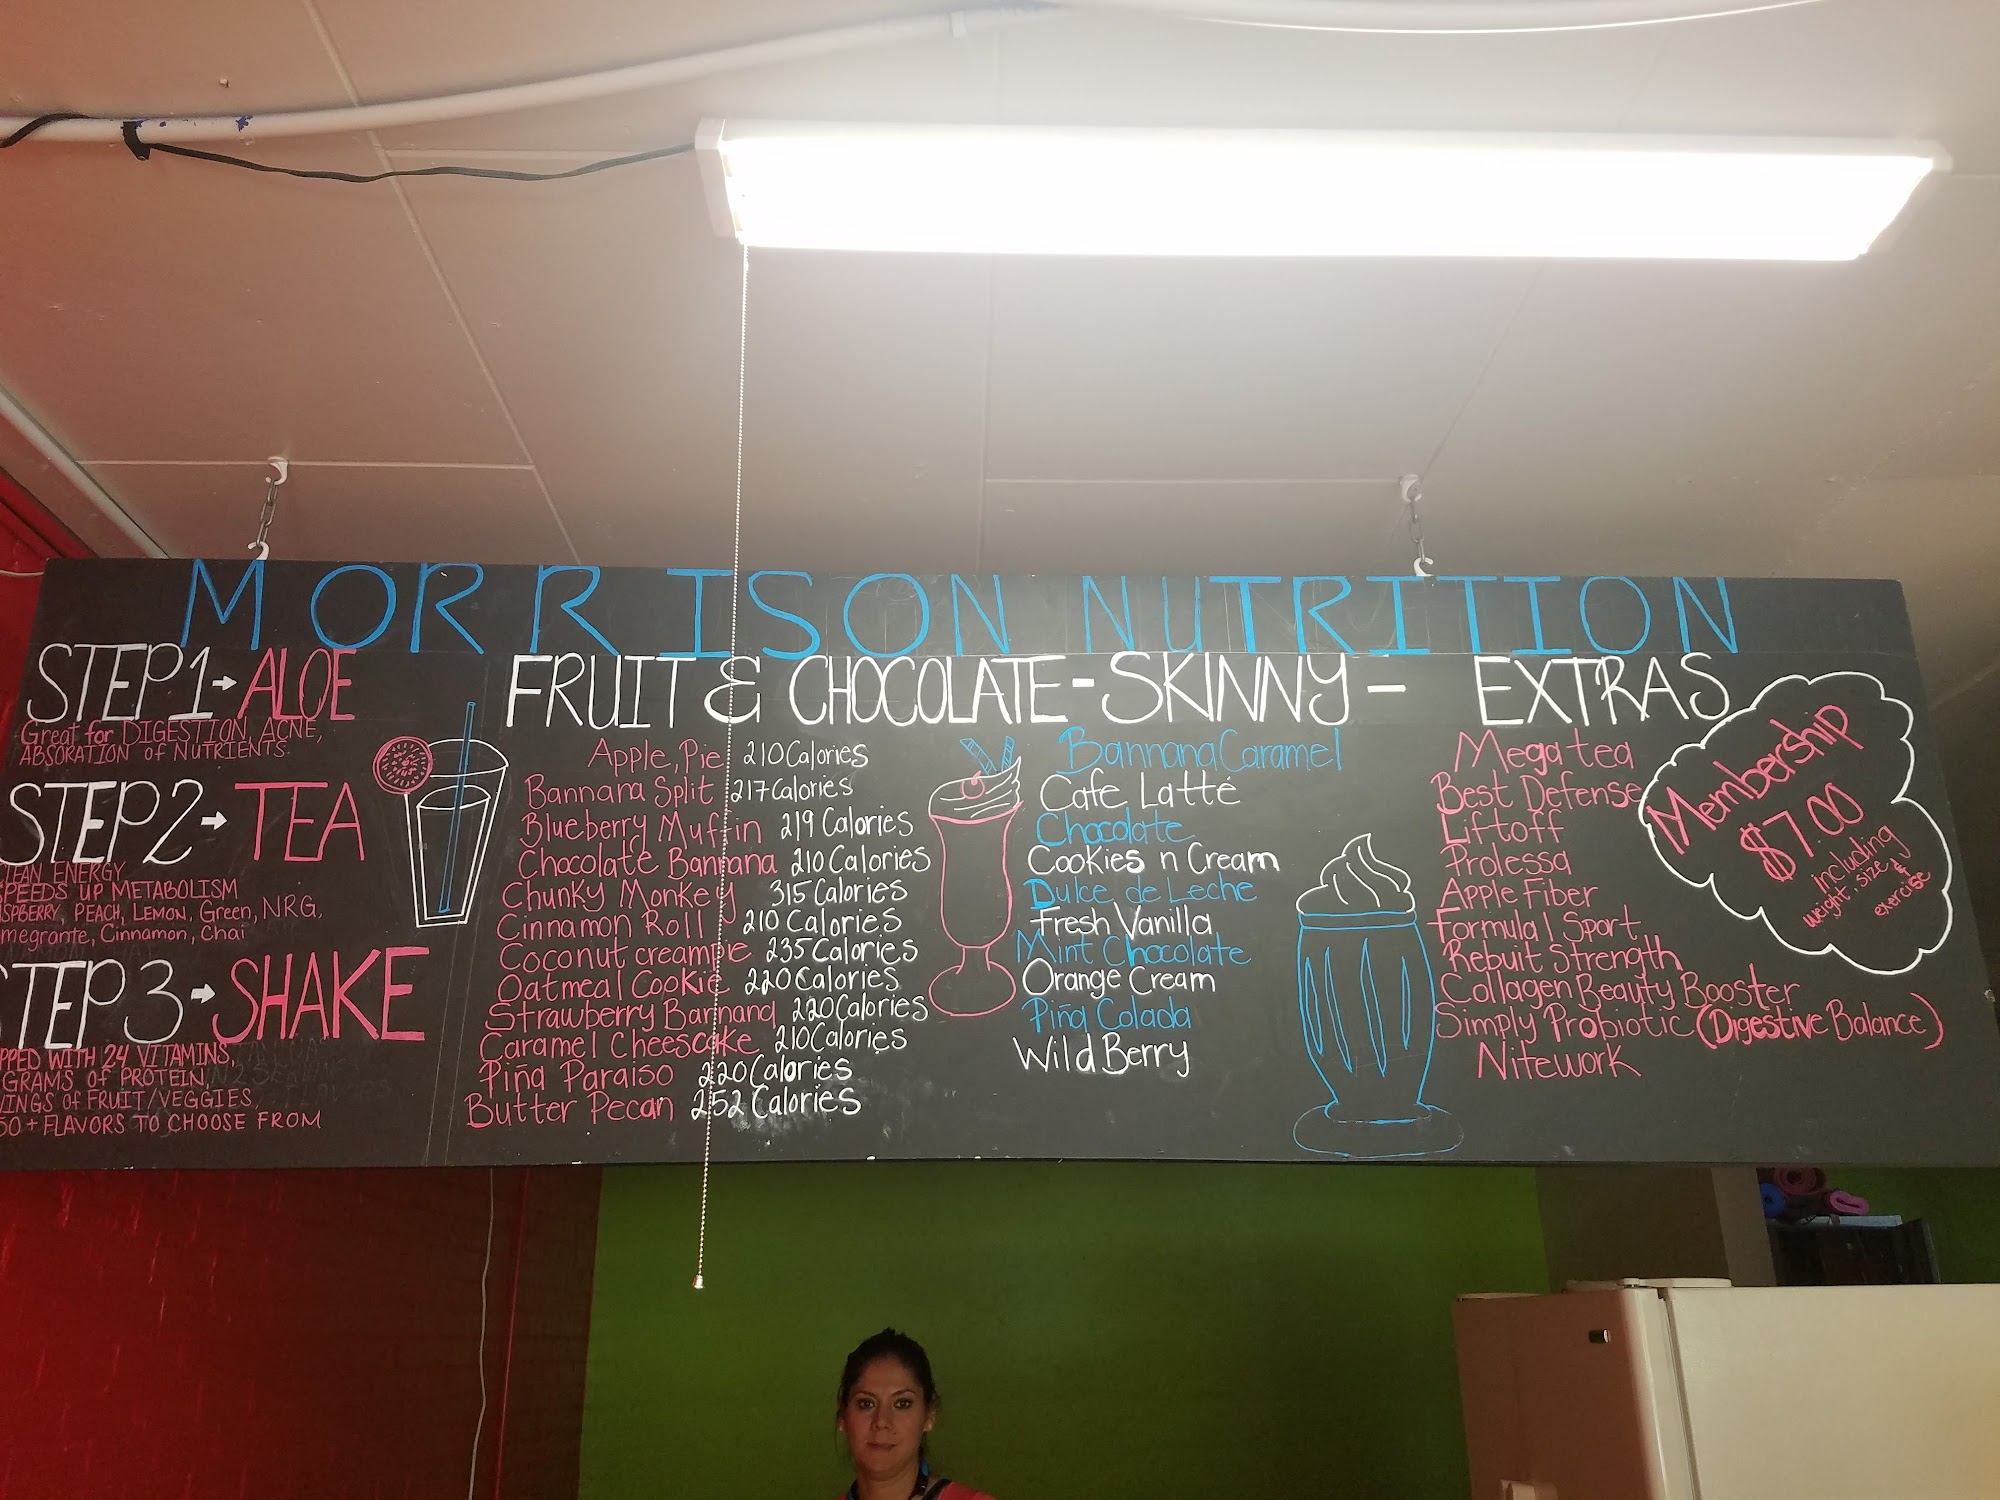 MORRISON NUTRITION
STEP 1 → ALOE
Great for DIGESTION, ACNE,
ABSORATION of NUTRIENTS.
STEP 2 → TEA
CLEAN ENERGY
SPEEDS UP METABOLISM
RASPBERRY, PEACH, LEMON, Green, NRG,
megrante, Cinnamon, Chai
STEP 3 → SHAKE
PPED WITH 24 VITAMINS,
GRAMS OF PROTEIN,
VINGS OF FRUIT/VEGGIES,
50+ FLAVORS TO CHOOSE FROM
FRUIT & CHOCOLATE
Apple, Pie 210 Calories
Bannana Split 217 Calories
Blueberry Muffin 219 Calories
Chocolate Bannana 210 Calories
Chunky Monkey 315 Calories
Cinnamon Roll 210 Calories
Coconut creampie 235 Calories
Oatmeal Cookie 220 Calories
Strawberry Bannana 220 Calories
Caramel Cheescake 210 Calories
Piña Paraiso 220 Calories
Butter Pecan 252 Calories
-SKINNY-
Bannana Caramel
Cafe Latté
Chocolate
Cookies n Cream
Dulce de Leche
Fresh Vanilla
Mint Chocolate
Orange Cream
Piña Colada
Wild Berry
EXTRAS
Mega tea
Best Defense
Liftoff
Prolessa
Apple Fiber
Formula 1 Sport
Rebuit Strength
Collagen Beauty Booster
Simply Probiotic (Digestive Balance)
Nitework
Membership
$7.00
including
weight, size &
exercise